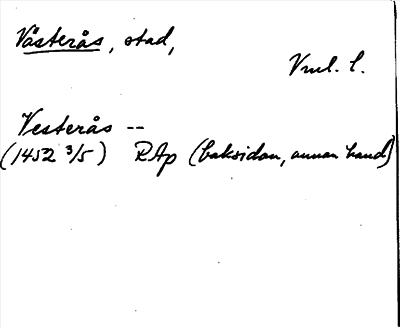 Västerås, stad,
Vml. l.
Vesterås --
(1452 3/5) RAp (baksidan, annan hand)